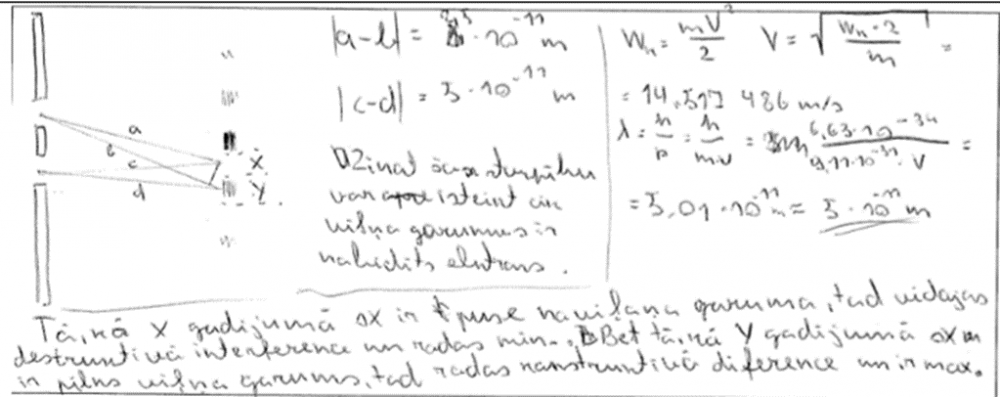 |a-b| = 2,5 · 10⁻¹¹ m
|c-d| = 5 · 10⁻¹¹ m
a
b
c
d
X
Y
Zinot
var izteikt
viļņa garumus ir
nobīdīts elktrons.
Wₖ = mV²/2 V = √(Wₖ·2/m) =
= 14 517 486 m/s
λ = h/p = h/mv = 6,63·10⁻³⁴/9,11·10⁻³¹·V =
= 5,01·10⁻¹¹ m = 5·10⁻¹¹ m
Tā, kā X gadījumā ΔX ir puse no viļņa garuma, tad vidojas
destruktīvā interference un rodas min. Bet tā, kā Y gadījumā ΔX
ir pilns viļņa garums, tad rodas konstruktīvā diference un ir max.